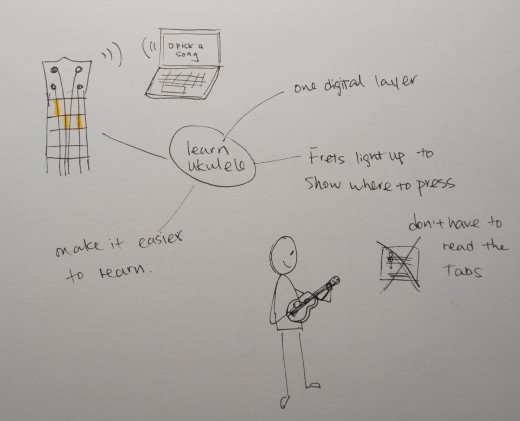 pick a
song
one digital layer
learn
ukulele
Frets light up to
show where to press
make it easier
to learn.
don't have to
read the
Tabs